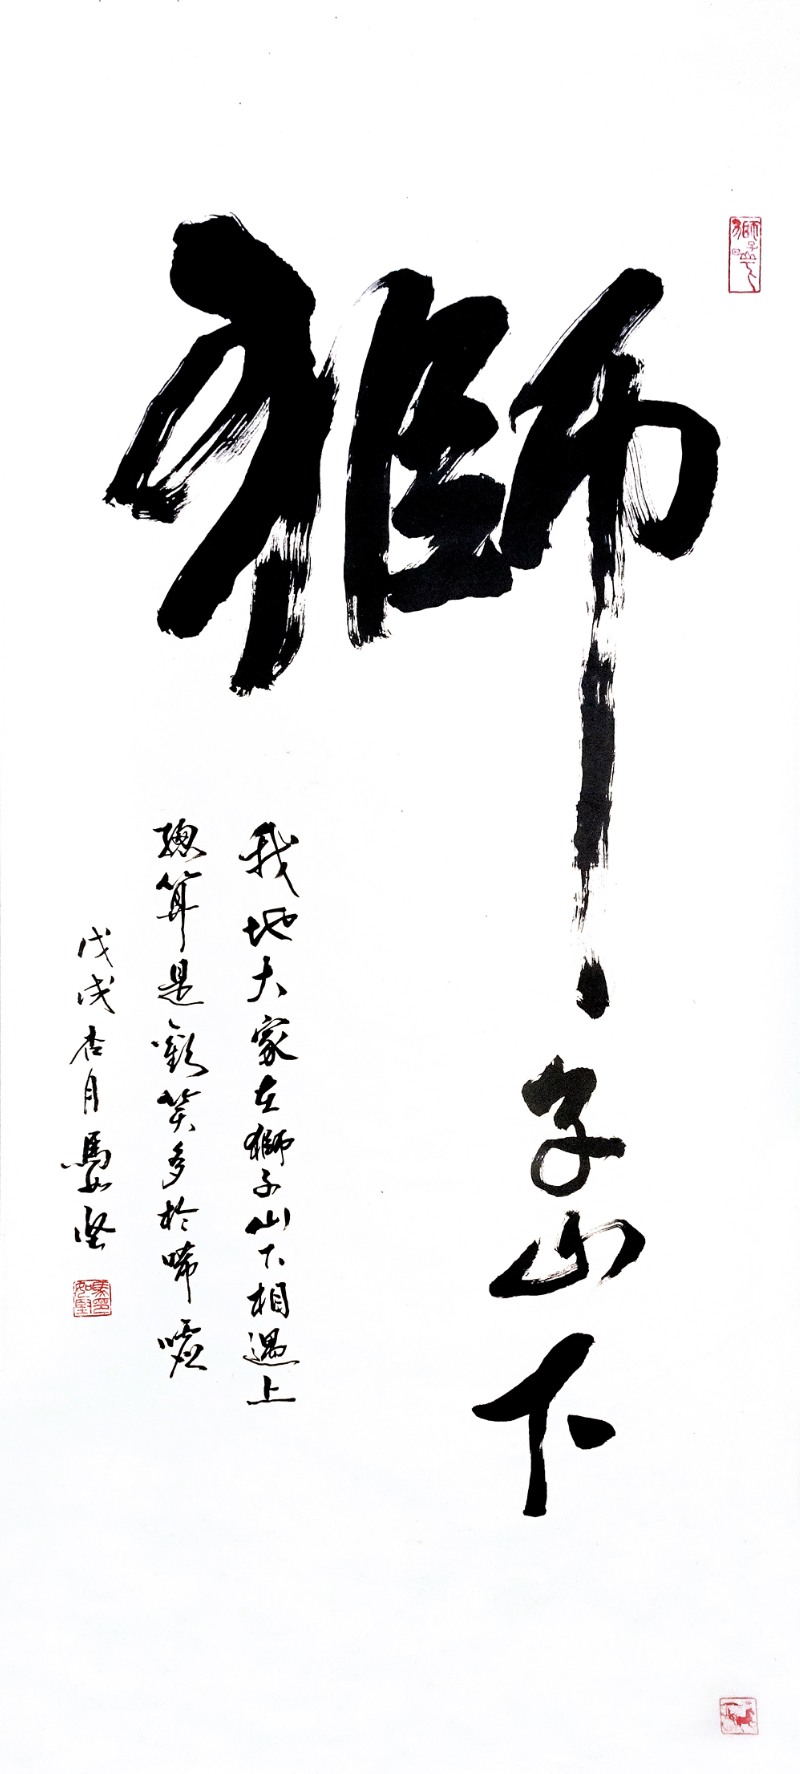 獅子山下
我地大家在獅子山下相遇上
總算是歡笑多於唏噓
戊戌杏月馬如堅
獅子山下